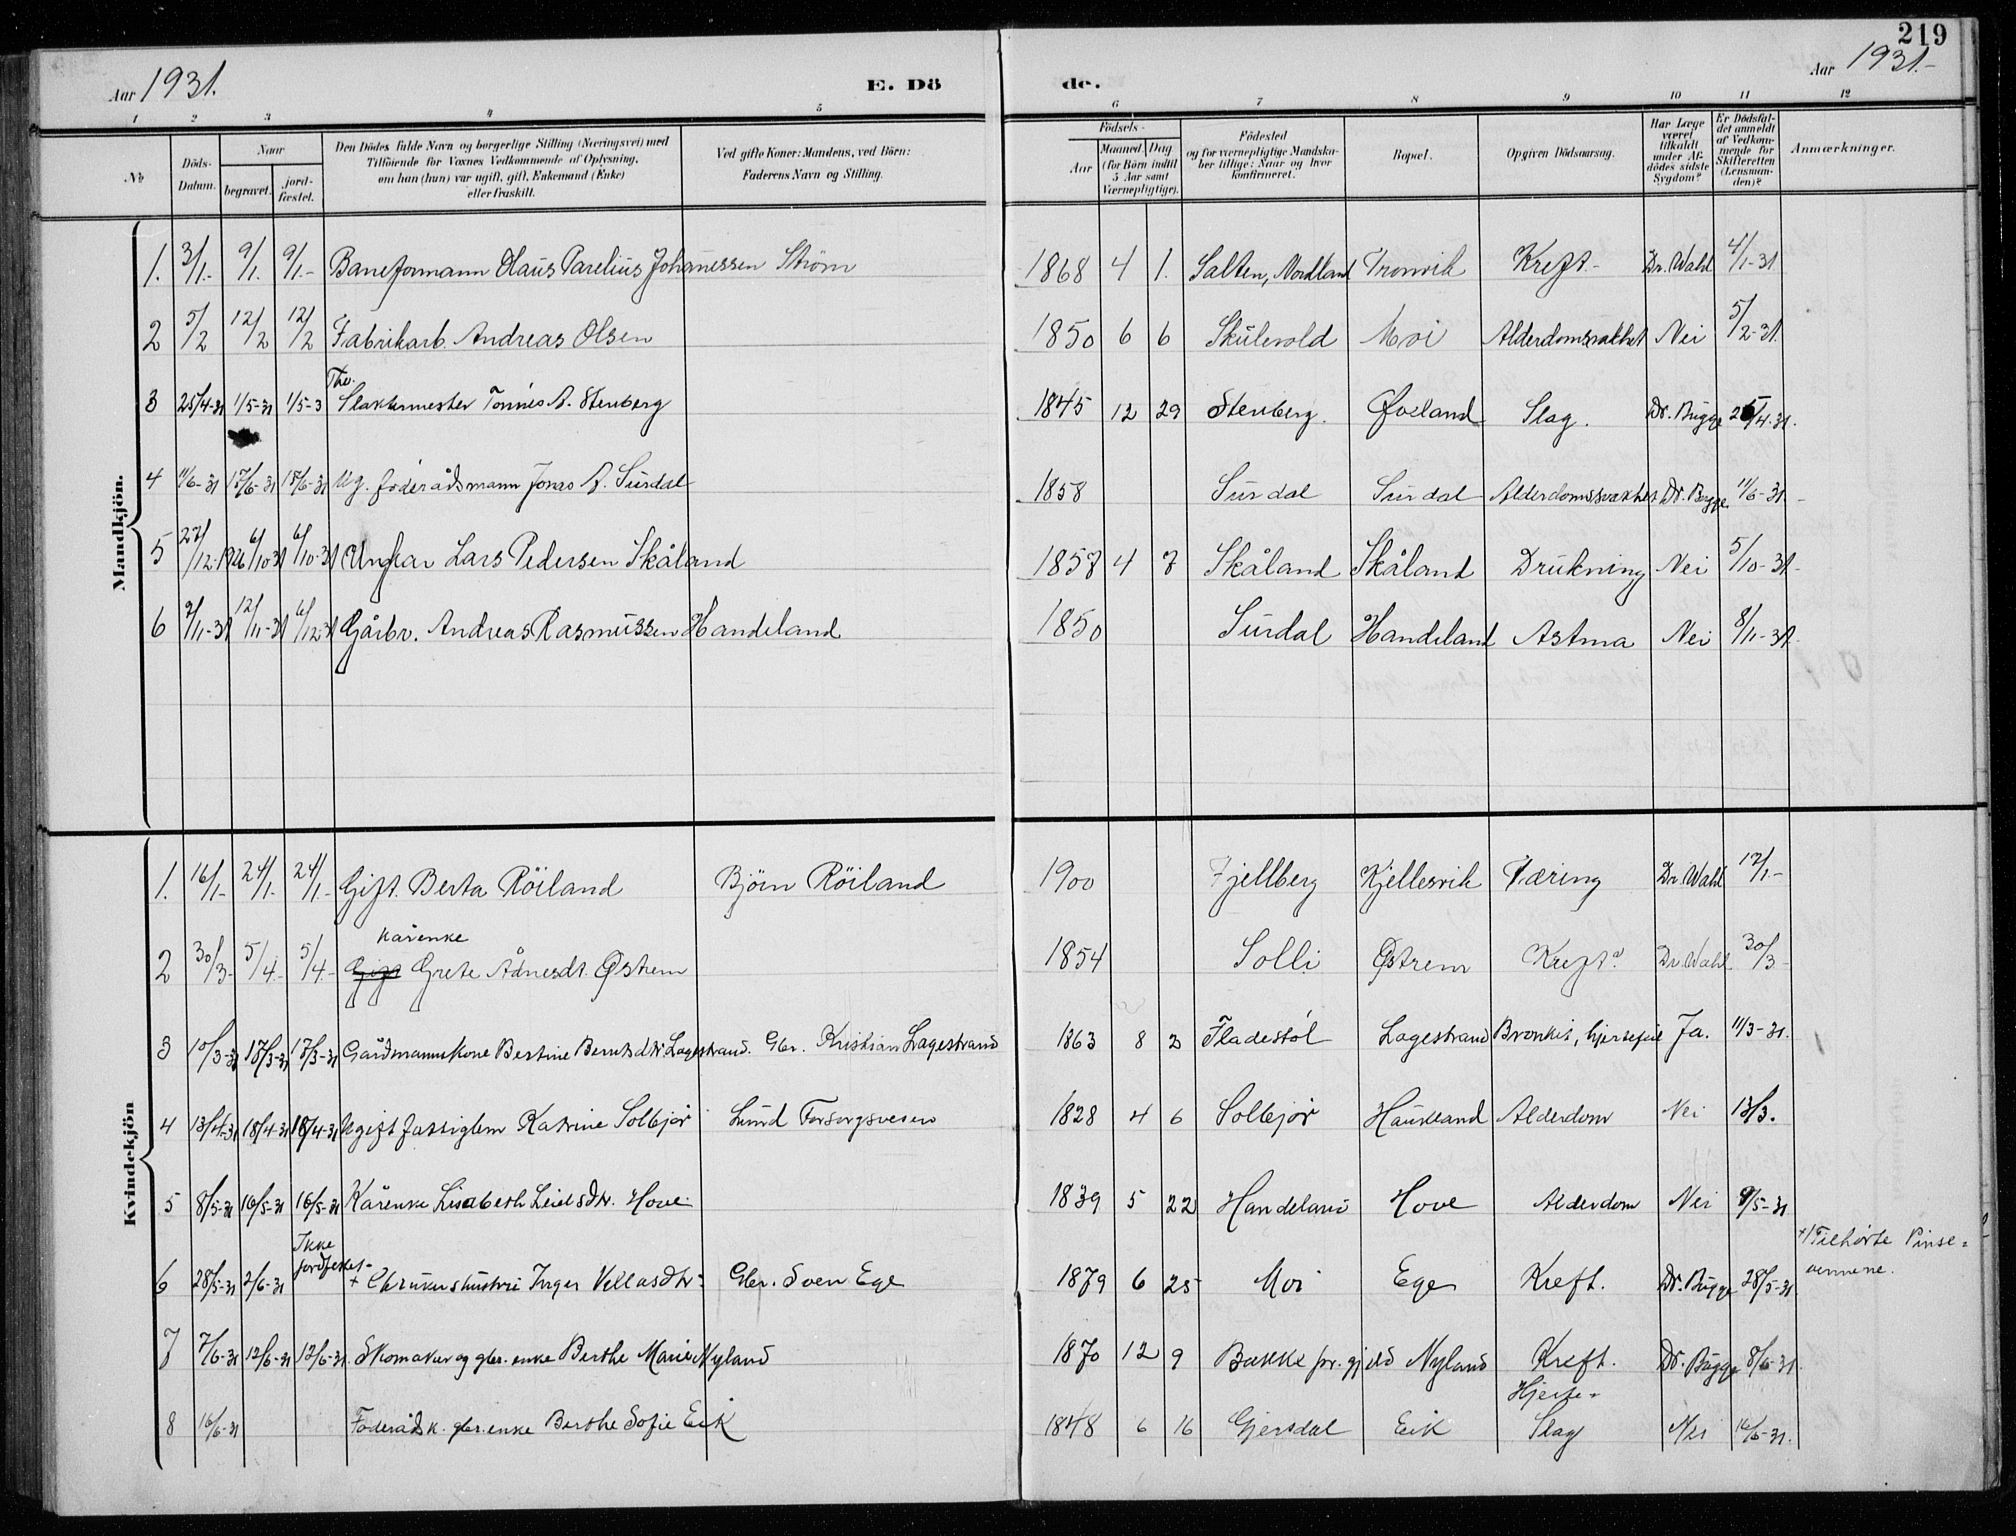 219
Aar 1931.
E. Dö
de.
Aar 1931.-
1 2 3 4 5 6 7 8 9 10 11 12
No
Döds-Datum.
Naar
begravet.
jord-fæstet.
Den Dödes fulde Navn og borgerlige Stilling (Næringsvei) med
Tilföiende for Voxnes Vedkommende af Oplysning,
om han (hun) var ugift, gift, Enkemand (Enke)
eller fraskilt.
Ved gifte Koner: Mandens, ved Börn:
Faderens Navn og Stilling.
Födsels-
Aar
Maaned. Dag.
(for Börn indtil 5 Aar samt Værnepligtige).
Födested
og for værnepligtige Mandska-
ber tillige: Naar og hvor
konfirmeret.
Bopæl.
Opgiven Dödsaarsag.
Har Læge været tilkaldt under Af-dödes sidste Sygdom?
Er Dödsfal-det anmeldt af Vedkom-mende for Skifteretten (Lensman-den)?
Anmærkninger.
Mandkjön.
1. 3/1.- 9/1. 9/1.- Baneformann Olaus Parelius Johanessen Ström 1868 4 1. Salten, Nordland Tronvik Kreft.- Dr. Wahl 4/1-31
2 5/2 12/2 12/2 Fabrikarb. Andreas Olsen 1850 6 6 Skulevold Moi Alderdomsvakhet Nei 5/2-31.
Thv.
3 25/4-31 1/5-31 1/5-3 Slaktermester Tonnes A. Stenberg 1845 12 29 Stenberg. Øveland Slag. Dr. Bugge 25/4-31.
4 11/6-31 17/6-31 17/6-31 Ug. föderådsmann Jonas A. Surdal 1858 Surdal Surdal Alderdomssvakhet Dr. Bugge 11/6-31.-
5 27/12-1926 6/10 31 6/10-31 Ungkar Lars Pedersen Skåland 1857 4 7 Skåland Skåland Drukning Nei 5/10-31-
6 7/11-31 12/11-31 6/12-31 Gårbr. Andreas Rasmussen Handeland 1850 Surdal Handeland Astma Nei 8/11-31.
Kvindekjön
1. 16/1- 24/1- 24/1- Gift. Berta Röiland Björn Röiland 1900 Fjellberg Kjellesvik Tæring Dr. Wahl 17/1-
Kårenke
2 30/3- 5/4- 5/4- Gift Grete Ådnesdt. Østrem 1854 Solli Østrem Kreft. Dr. Wahl 30/3-
3 10/3-31 17/3-31 17/3-31 Gårdmannskone Bertine Berntsdtr Lagestrand. Gbr. Kristian Lagestrand 1863 8 2 Fladestøl Lagestrand Bronkit, hjertefeil Ja. 11/3-31.
4 13/4-31 18/4-31 18/4-31 Ugift fattiglem Katrine Solbjør Lund Forsorgsvesen 1828 4 6 Solbjør Haukland Alderdom Nei 13/3.
5 8/5-31 16/5-31 16/5-31 Kårenke Lisabeth Leidsdtr. Hove 1839 5 22 Handeland Hove Alderdom Nei 9/5-31
6 28/5-31 2/6-31 Ikke jordfestet- + Gbrukerhustru Inger Vellasdtr. Gbr. Sven Ege 1879 6 25 Moi Ege Kreft. Dr. Bugge 28/5-31 +) Tilhørte Pinse=
vennene.
7 7/6-31 12/6-31 12/6-31 Skomaker og gbr. enke Berthe Marie Nyland 1870 12 9 Bakke pr. gjeld Nyland Kreft. Dr. Bugge 8/6-31
Hjerte-
8 16/6-31 Foderådsk. gbr. enke Berthe Sofie Eik 1848 6 16 Gjersdal Eik Slag Nei 16/6-31.